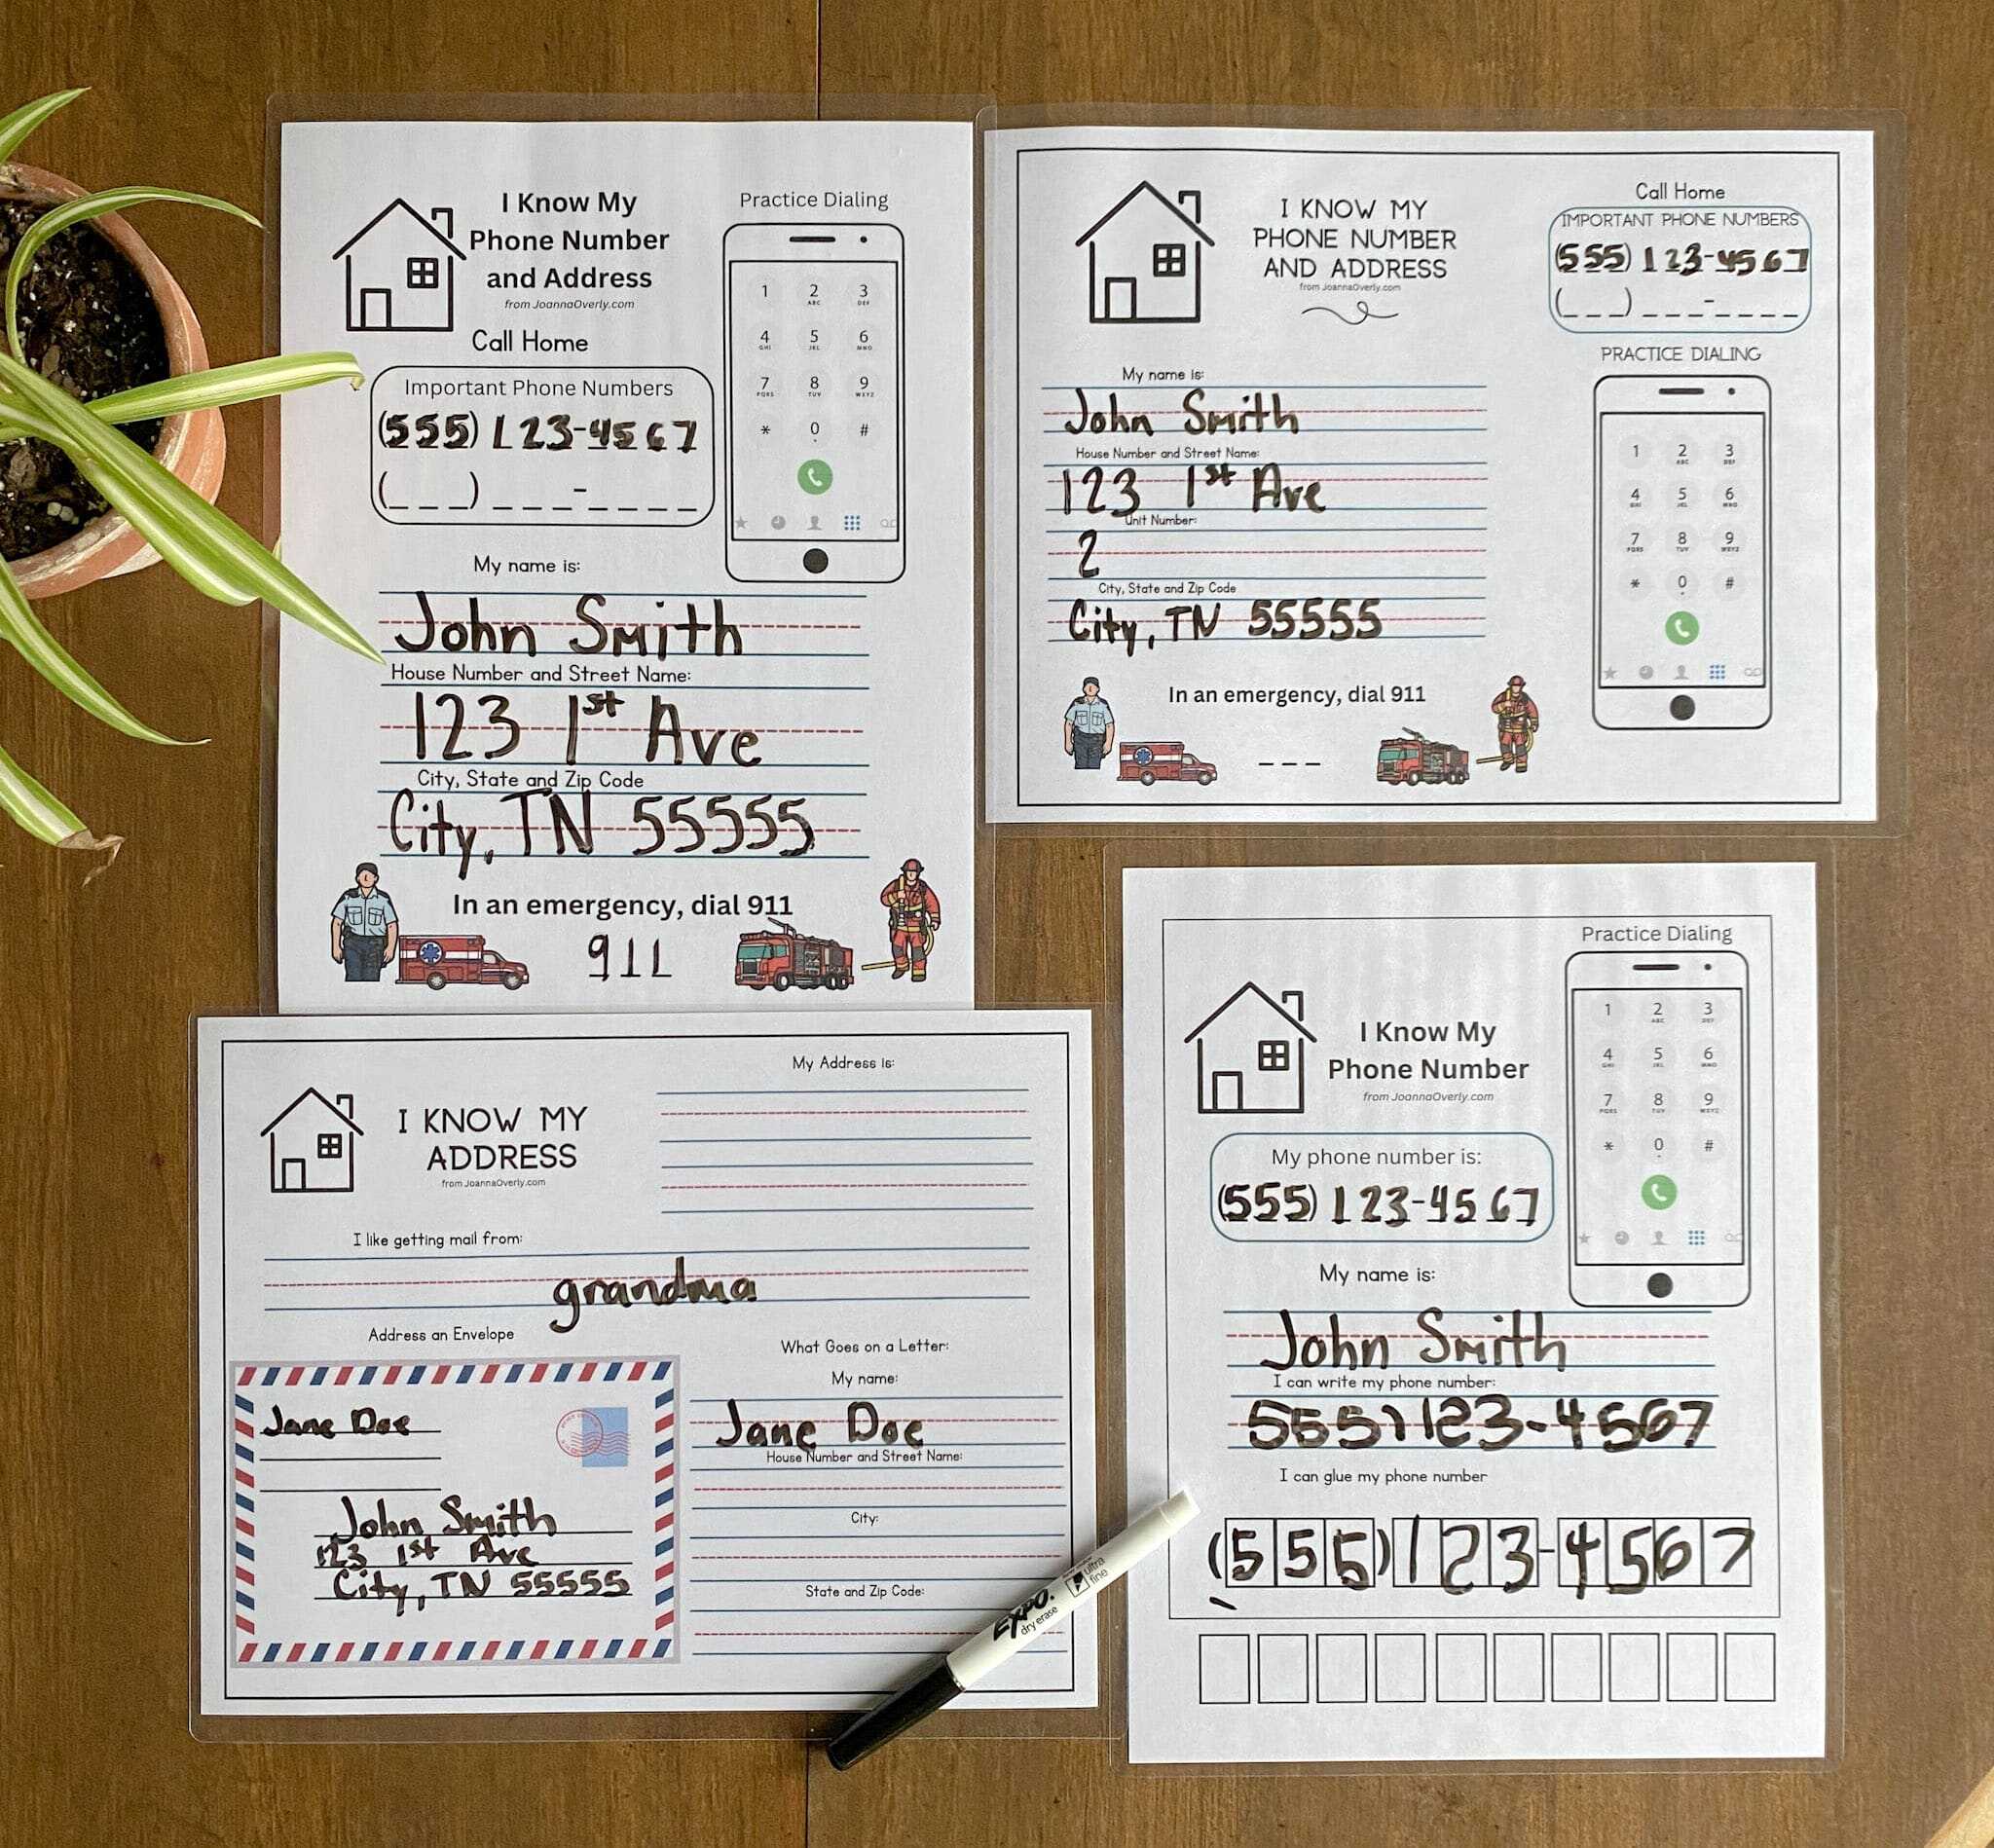 I Know My
Phone Number
and Address
from JoannaOverly.com
Call Home
Important Phone Numbers
(555) 123-4567
(_ _ _) _ _ _-_ _ _ _
Practice Dialing
1 2 3
ABC DEF
4 5 6
GHI JKL MNO
7 8 9
PQRS TUV WXYZ
* 0 #
My name is:
John Smith
House Number and Street Name:
123 1st Ave
City, State and Zip Code
City, TN 55555
In an emergency, dial 911
911
I KNOW MY
PHONE NUMBER
AND ADDRESS
from JoannaOverly.com
Call Home
IMPORTANT PHONE NUMBERS
(555) 123-4567
(_ _ _) _ _ _-_ _ _ _
PRACTICE DIALING
1 2 3
ABC DEF
4 5 6
GHI JKL MNO
7 8 9
PQRS TUV WXYZ
* 0 #
My name is:
John Smith
House Number and Street Name:
123 1st Ave
Unit Number:
2
City, State and Zip Code
City, TN 55555
In an emergency, dial 911
_ _ _
I KNOW MY
ADDRESS
from JoannaOverly.com
My Address is:
I like getting mail from:
grandma
Address an Envelope
Jane Doe
John Smith
123 1st Ave
City, TN 55555
What Goes on a Letter:
My name:
Jane Doe
House Number and Street Name:
City:
State and Zip Code:
EXPO.
dry erase
ultra
fine
I Know My
Phone Number
from JoannaOverly.com
Practice Dialing
1 2 3
ABC DEF
4 5 6
GHI JKL MNO
7 8 9
PQRS TUV WXYZ
* 0 #
My phone number is:
(555) 123-4567
My name is:
John Smith
I can write my phone number:
555)123-4567
I can glue my phone number
(555)123-4567